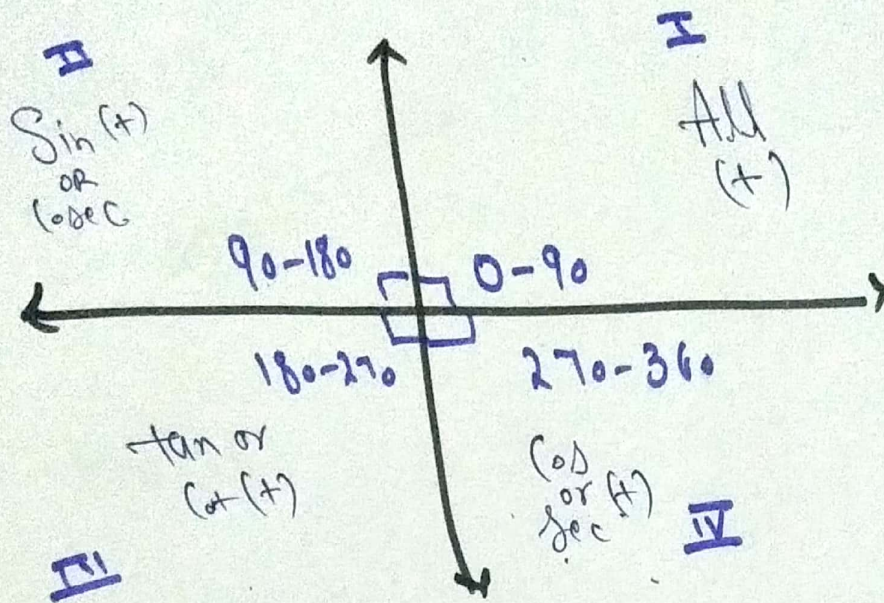 II
I
Sin (+)
OR
Cosec
All
(+)
90-180
0-90
180-270
270-360
tan or
Cot (+)
Cos
or (+)
Sec
III
IV